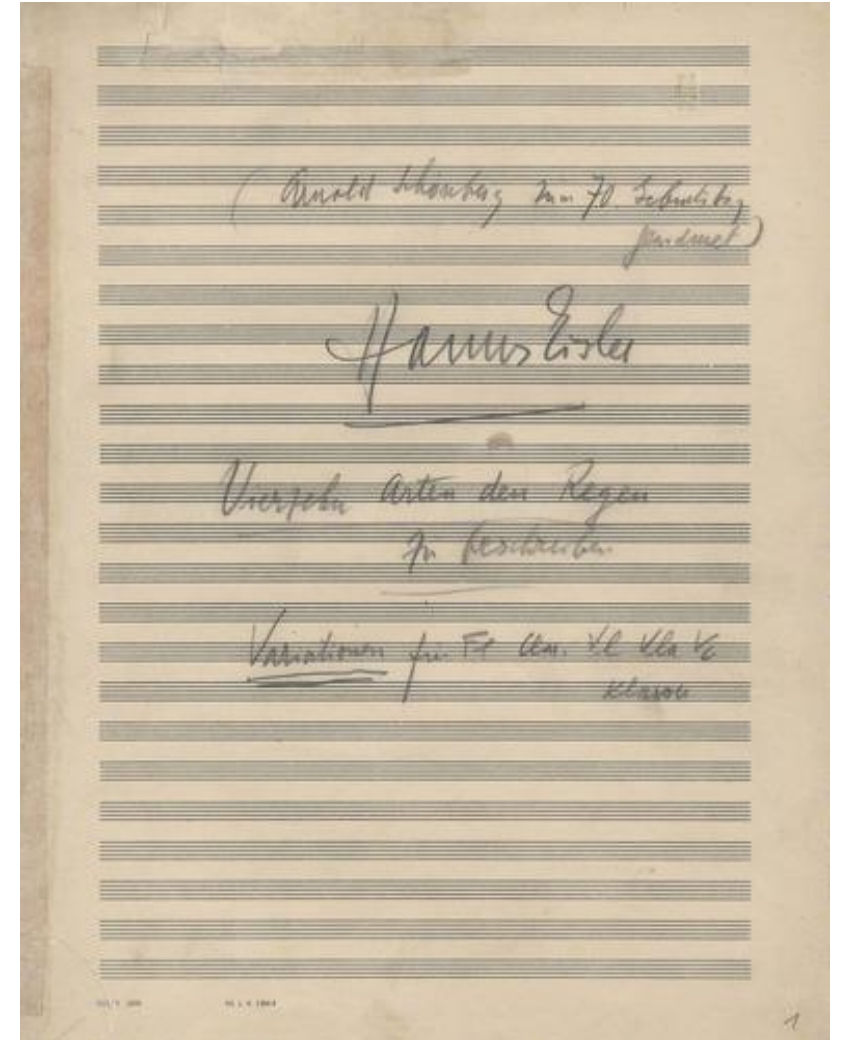 (Arnold Schönberg zum 70. Geburtstag
gewidmet)
Hanns Eisler
Vierzehn Arten den Regen
zu beschreiben
Variationen für Fl Clar. Vl Vla Vc
Klavier
1